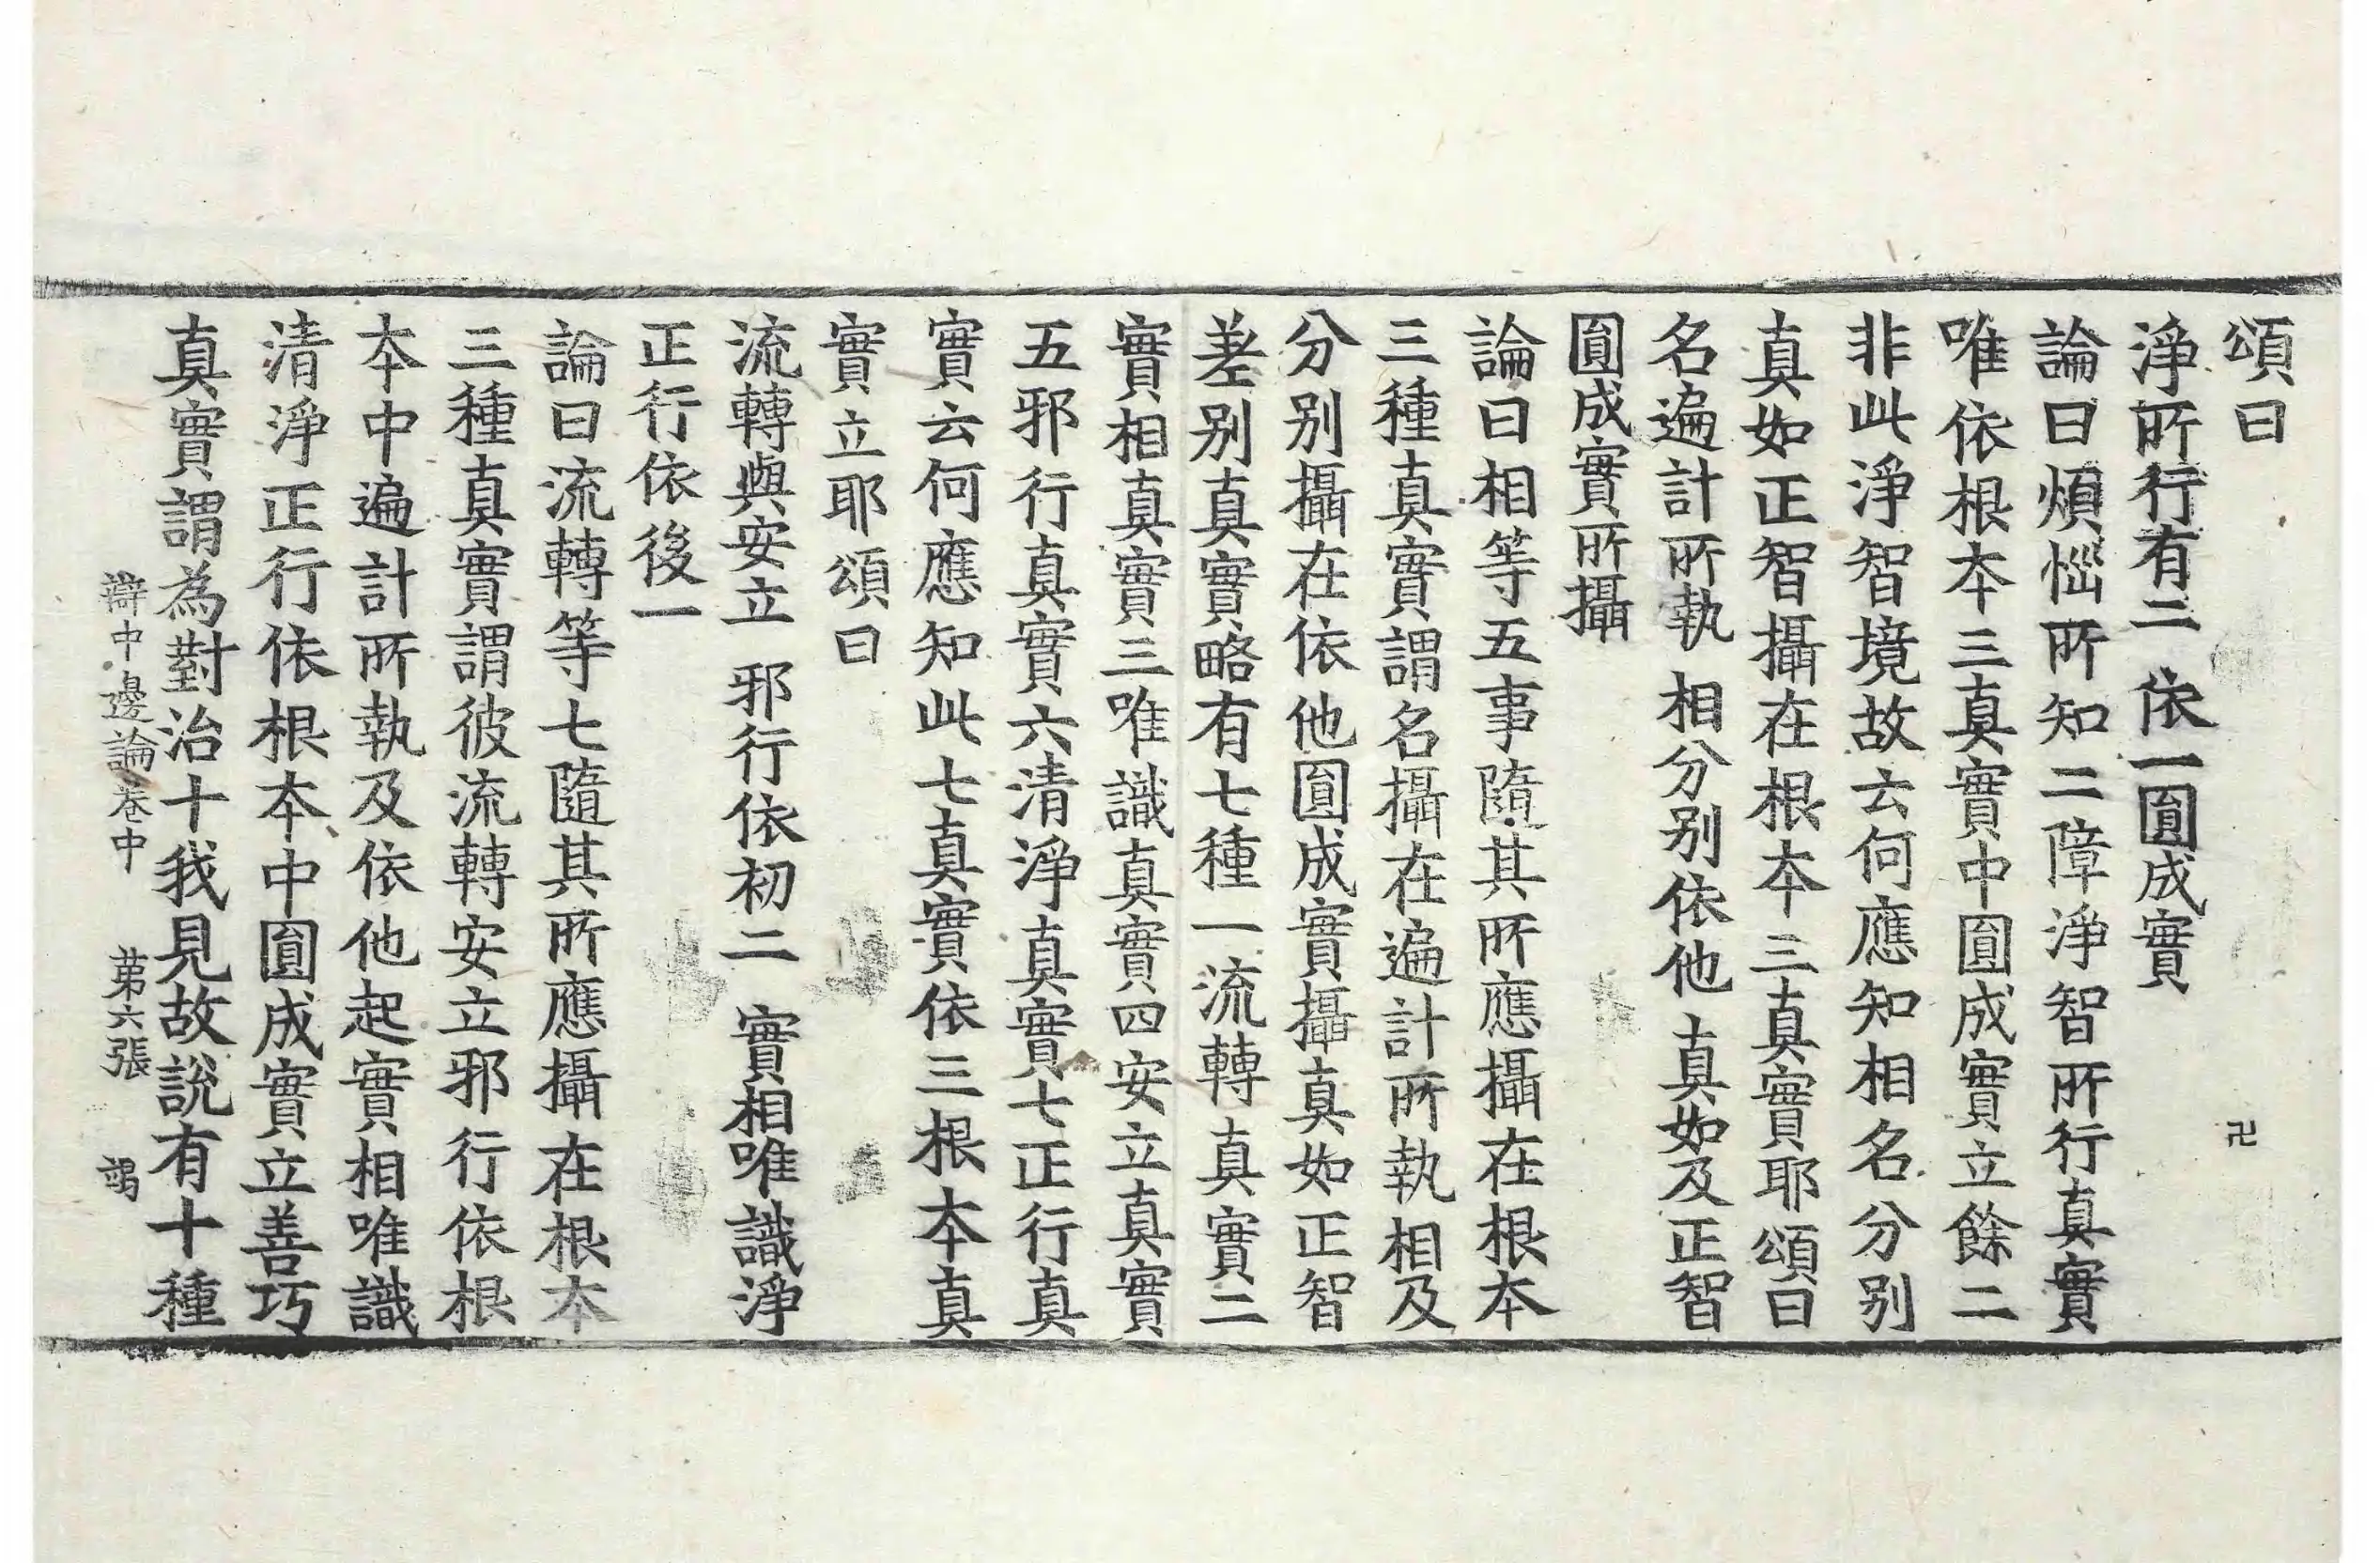 頌曰
淨所行有二 依一圓成實
論曰煩惱所知二障淨智所行真實
唯依根本三真實中圓成實立餘二
非此淨智境故云何應知相名分別
真如正智攝在根本三真實耶頌曰
名遍計所執 相分別依他 真如及正智
圓成實所攝
論曰相等五事隨其所應攝在根本
三種真實謂名攝在遍計所執相及
分別攝在依他圓成實攝真如正智
差別真實略有七種一流轉真實二
實相真實三唯識真實四安立真實
五邪行真實六清淨真實七正行真
實云何應知此七真實依三根本真
實立耶頌曰
流轉與安立 邪行依初二 實相唯識淨
正行依後一
論曰流轉等七隨其所應攝在根本
三種真實謂彼流轉安立邪行依根
本中遍計所執及依他起實相唯識
清淨正行依根本中圓成實立善巧
真實謂為對治十我見故說有十種
辯中邊論卷中 第六張
卍